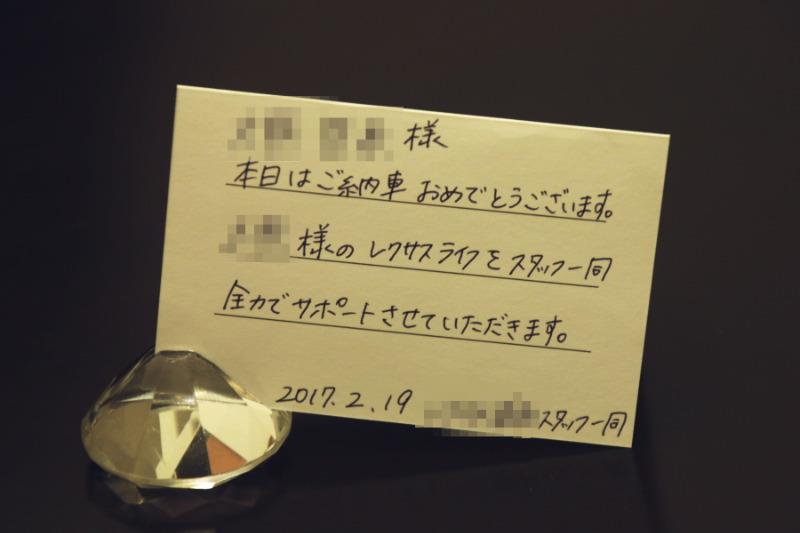 様
本日はご納車おめでとうございます。
様のレクサスライフをスタッフ一同
全力でサポートさせていただきます。
2017.2.19
スタッフ一同